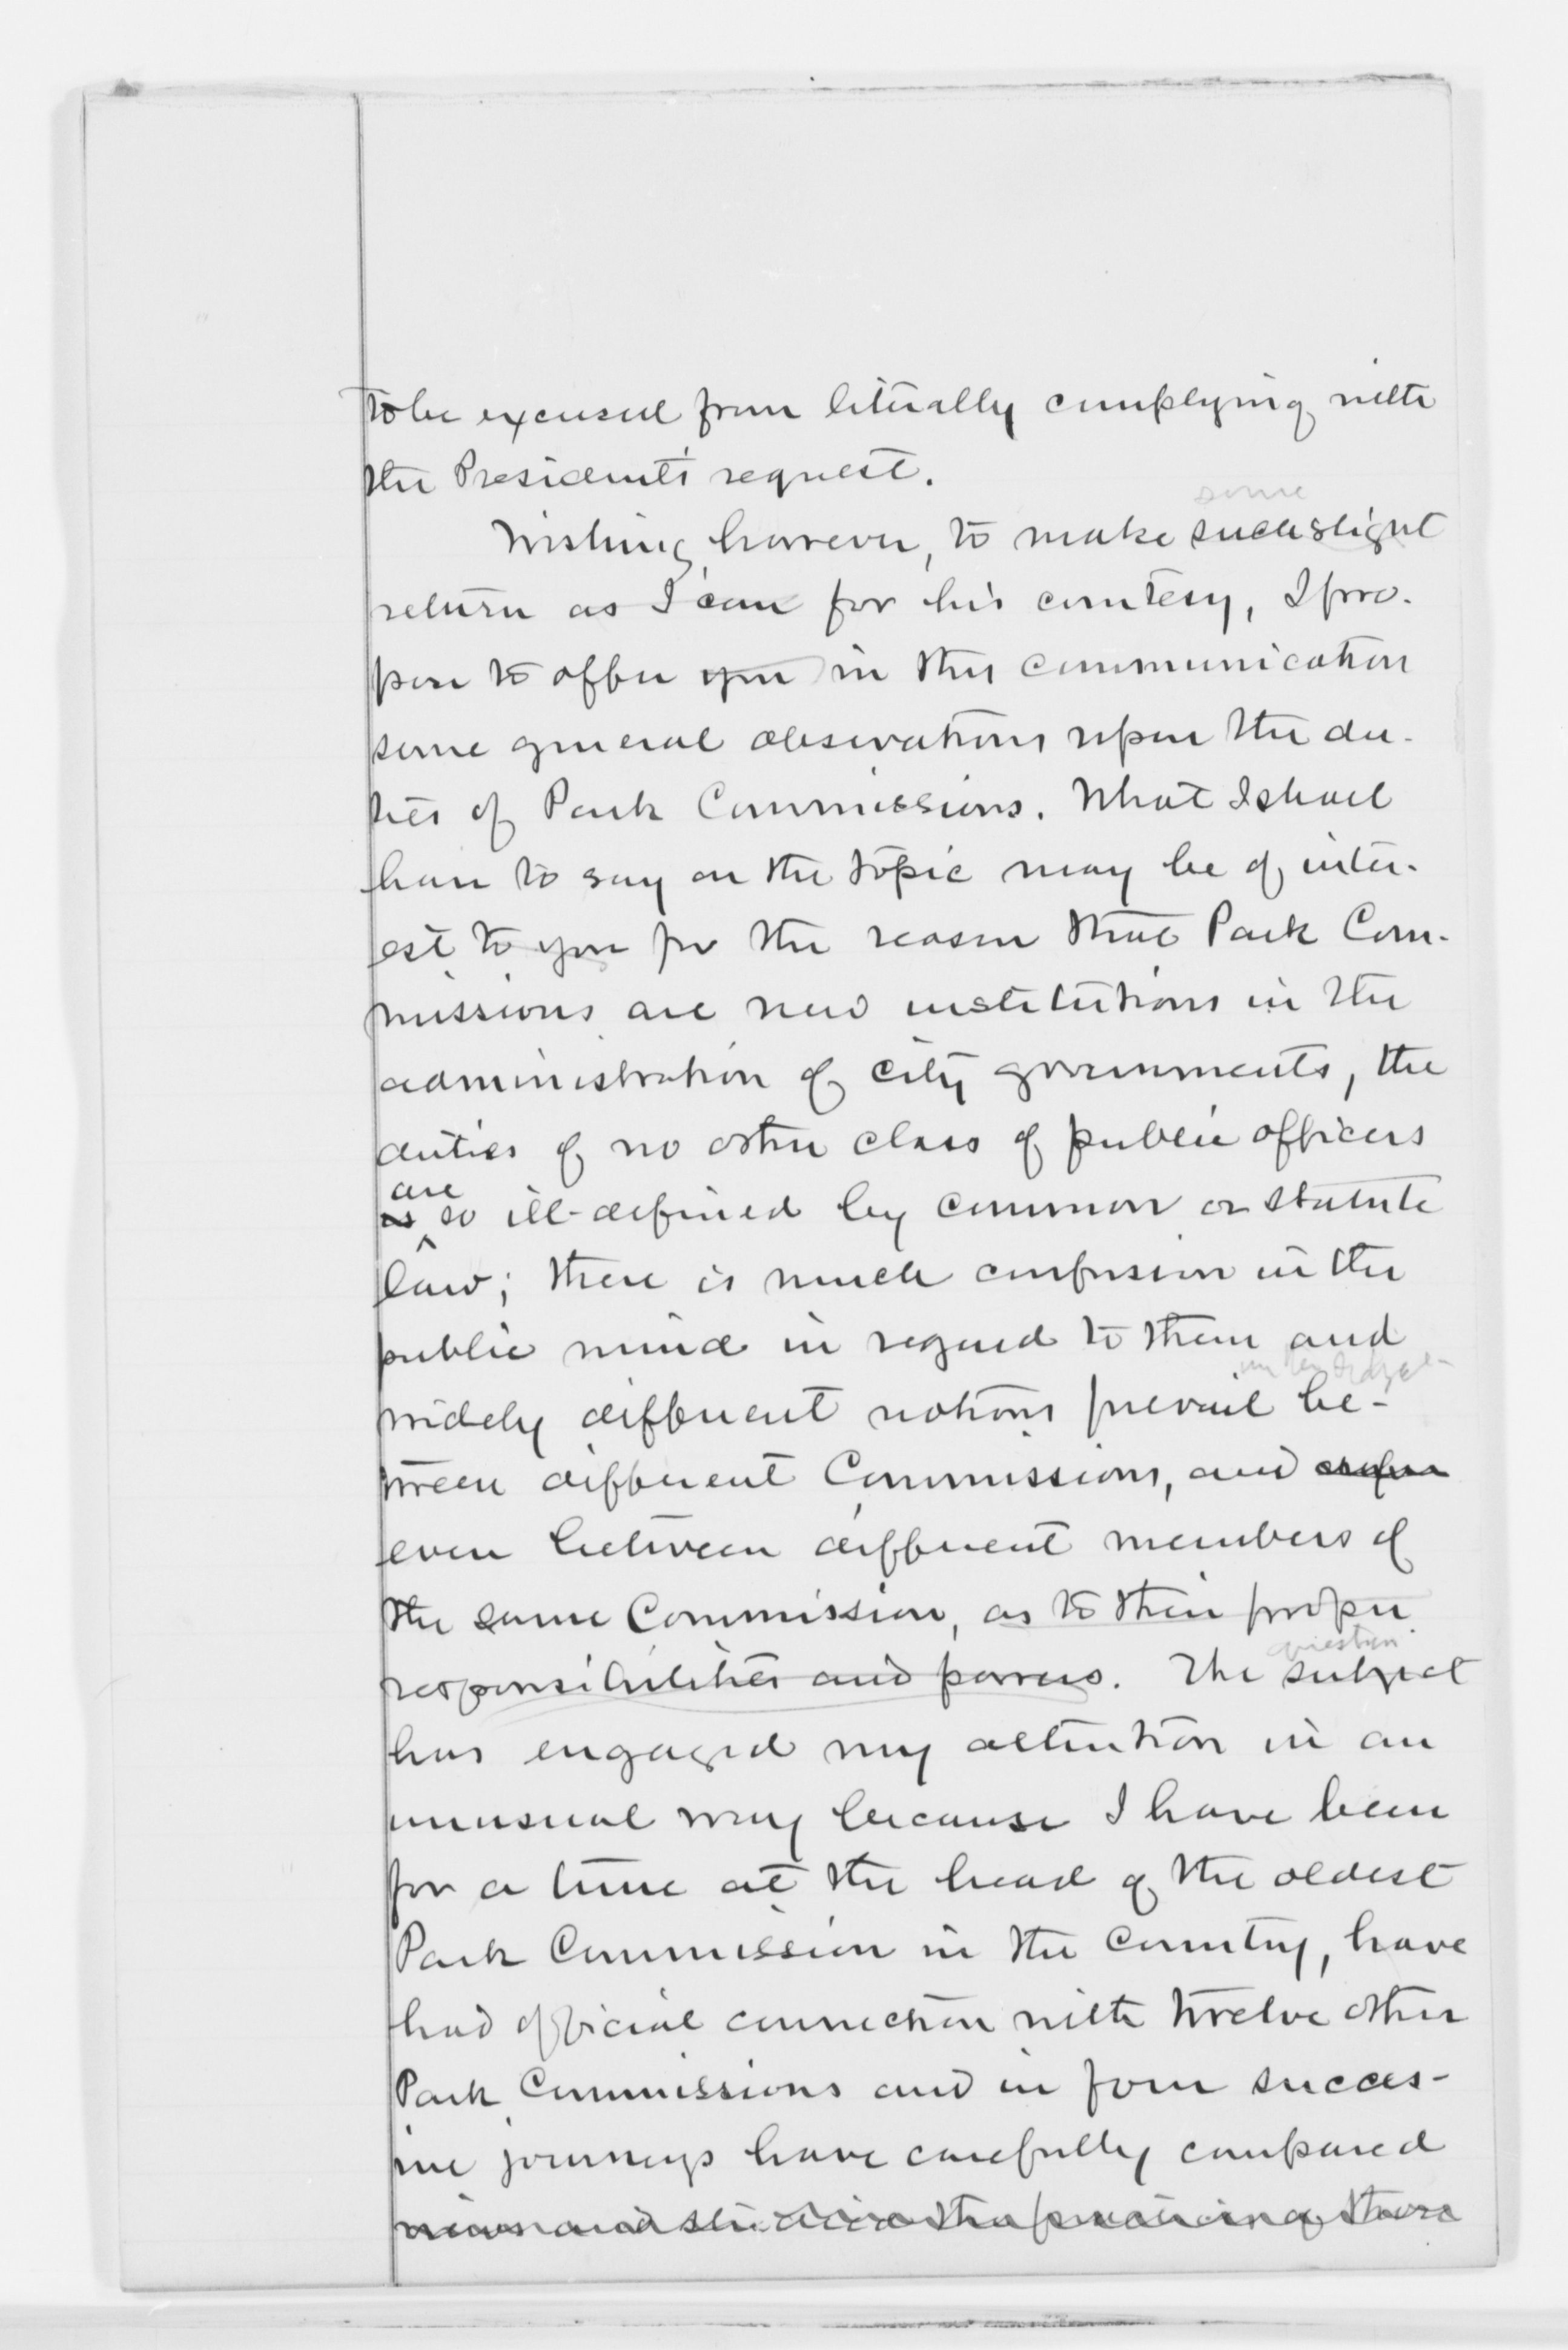 to be excused from literally complying with
the President's request.
some
Wishing, however, to make such slight
return as I can for his courtesy, I pro-
pose to offer you in this communication
some general observations upon the du-
ties of Park Commissions. What I shall
have to say on the topic may be of inter-
est to you for the reason that Park Com-
missions are new institutions in the
administration of city governments, the
duties of no other class of public officers
are
is so ill-defined by common or statute
law; there is much confusion in the
public mind in regard to them and
widely different notions prevail be-
tween different Commissions, and
even between different members of
the same Commission, as to their proper
question
responsibilities and powers. The subject
has engaged my attention in an
unusual way because I have been
for a time at the head of the oldest
Park Commission in the Country, have
had official connection with twelve other
Park Commissions and in four succes-
ive journeys have carefully compared
views and studied the those